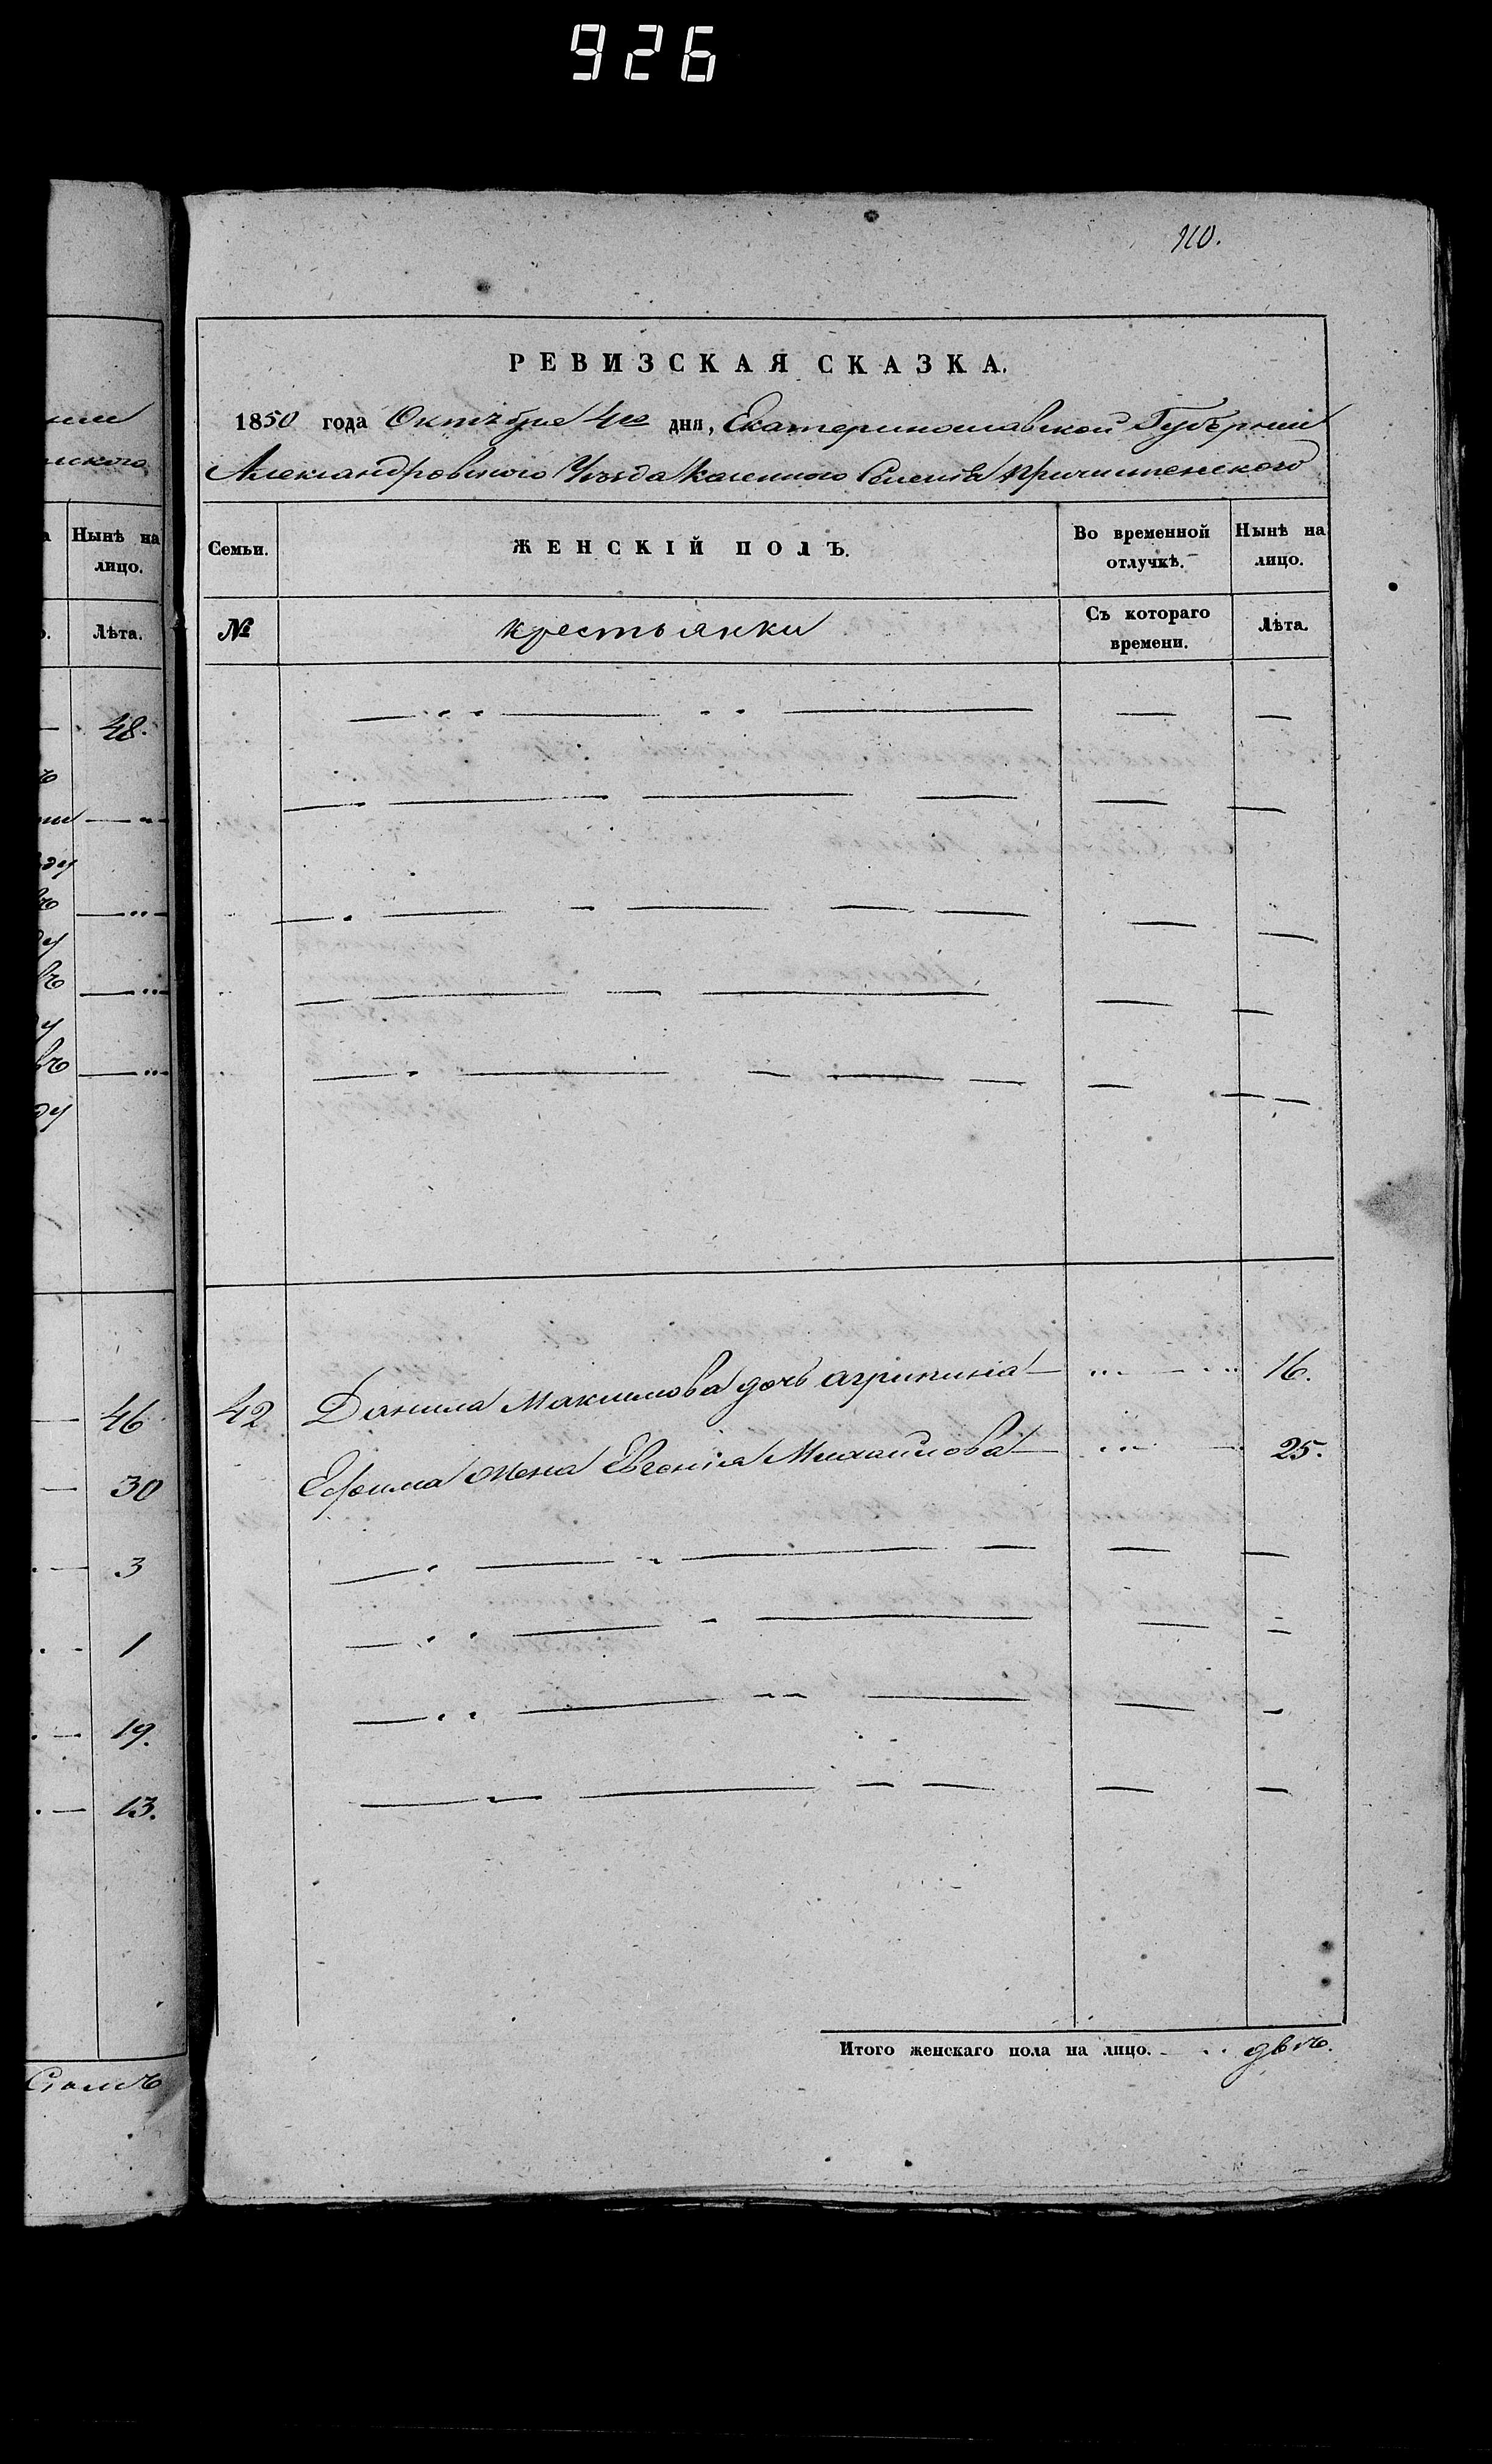 926
110.
РЕВИЗСКАЯ СКАЗКА.
1850 года Октября 4го дня, Екатеринославской Губерніи
Александровского Уѣзда Казенного Селенія Пречистенского
Нынѣ на лицо.
Семьи.
ЖЕНСКІЙ ПОЛЪ.
Во временной отлучкѣ.
Нынѣ на лицо.
Лѣта.
№
крестьянки
Съ котораго времени.
Лѣта.
48.
46
30
3
1
19.
13.
42 Данила Максимова дочь агрипина 16.
Ефима жена Евгенія Михайлова 25.
Итого женскаго пола на лицо. двѣ.